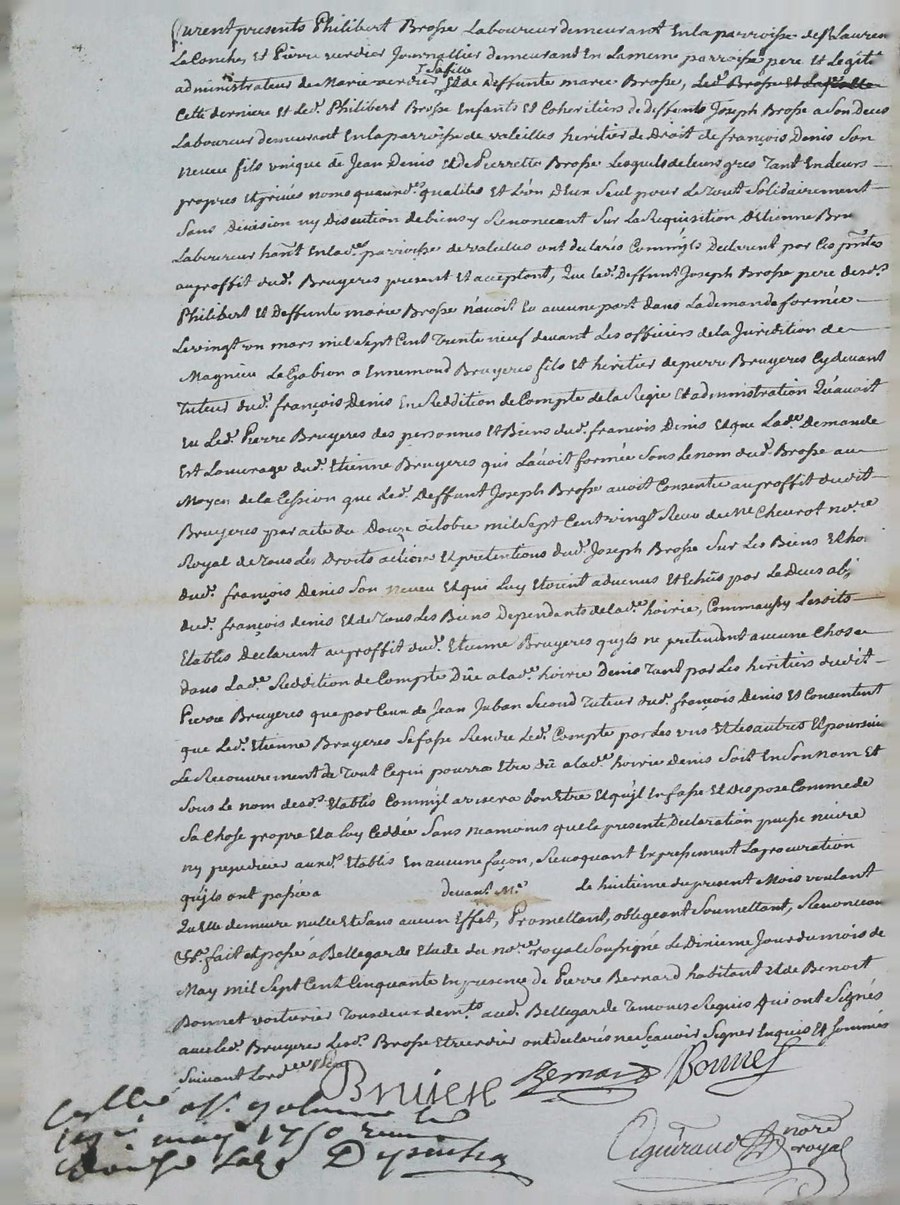 furent presents Philibert Brosse Laboureur demeurant En la parroisse de St Lauren
La Conche, Et Pierre verdier Journallier demeurant En la meme parroisse pere Et Legite
administrateur de Marie verdier sa fille Et de deffunte marie Brosse, Led. Brosse Et
Cette derniere et Led. Philibert Brosse Enfants Et Coheritiers de deffunt Joseph Brosse a Son Deces
Laboureur demeurant En la parroisse de valeilles heritier de Droit de françois Denis Son
neveu fils unique de Jean Denis Et de Pierrette Brosse Lesquels de leurs gres Tant En Leurs
propres Et privés noms qu'aux des. qualites Et L'un D'Eux Seul pour Le Tout Solidairement
Sans Division ny Discution de biens y Renoncant Sur La Requisition D'Etienne Bru
Laboureur hant En lade. parroisse de valeilles ont declarés Comm'jls Declarent par Ces pntes
au proffit dud. Bruyeres present Et acceptant, Que led. Deffunt Joseph Brosse pere desds.
Philibert Et deffunte marie Brosse n'avoit Eu aucune part dans La demande formée
Le vingt un mars mil Sept Cent Trente neuf devant Les officiers de la Juridition de
Magnieu Le Gabion a Ennemond Bruyeres fils Et heritier de pierre Bruyeres Cy devant
Tuteur dud. françois Denis En Reddition de Compte de la Regie Et administration Qu'avoit
Eu Led. Pierre Bruyeres des personnes Et Biens dud. françois Denis Et que Lade. Demande
Est L'ouvrage dud. Etienne Bruyeres qui L'avoit formée Sous Le nom dud. Brosse au
Moyen de la Cession que Led. Deffunt Joseph Brosse avoit Consentie au proffit dudit
Bruyeres par acte du Douze octobre mil Sept Cent vingt Receu de Me Cheurot nore
Royal de Tous Les Droits action Et pretentions dud. Joseph Brosse Sur Les Biens Et hoi
dud. françois Denis Son neveu Et qui Luy Etoient advenus Et Echûs par Le Deces ab
dud. françois denis Et de Tous Les Biens Dependants de lade. hoirie, Comm'aussy Lesdits
Etablis declarent au proffit dud. Etienne Bruyeres qu'jls ne pretendent aucune Chose
dans Lade. Reddition de Compte Düe a lade. hoirie Denis Tant par Les heritiers dudit
Pierre Bruyeres que par Ceux de Jean Juban Second Tuteur dud. françois Denis Et Consentent
que Led. Etienne Bruyeres Se fasse Rendre Led. Compte par Les uns Et Les autres Et poursui
Le Recouvrement de Tout Ce qui pourra Etre dû a lade. hoirie denis Soit En Son nom Et
Sous Le nom desds. Etablis Comm'jl avisera bon Etre Et qu'jl En fasse Et dispose Comme de
Sa Chose propre Et a luy Ceddée Sans neamoins que la presente Declaration puisse nuire
ny prejudicier auxds. Etablis En aucune façon, Revoquant Expressement La procuration
qu'jls ont passée a devant Me Le huitieme du present Mois voulant
Qu'Elle demeure nulle Et Sans aucun Effet, Promettant, obligeant Soumettant, Renonceant
&a. fait et passé a Bellegarde Etude du nore. royal Soussigné Le Dixieme Jour du mois de
May mil Sept Cent Cinquante En presence de Pierre Bernard habitant Et de Benoit
Bonnet voiturier Tous deux demts. aud. Bellegarde Temoins Requis Qui ont Signés
avec led. Bruyere Lesds. Brosse Et verdier ont declarés ne Sçavoir Signer Enquis Et Sommés
Suivant Lordce
Bruiere Bernard Bonnet
may 1750
Aguiraud nore royal